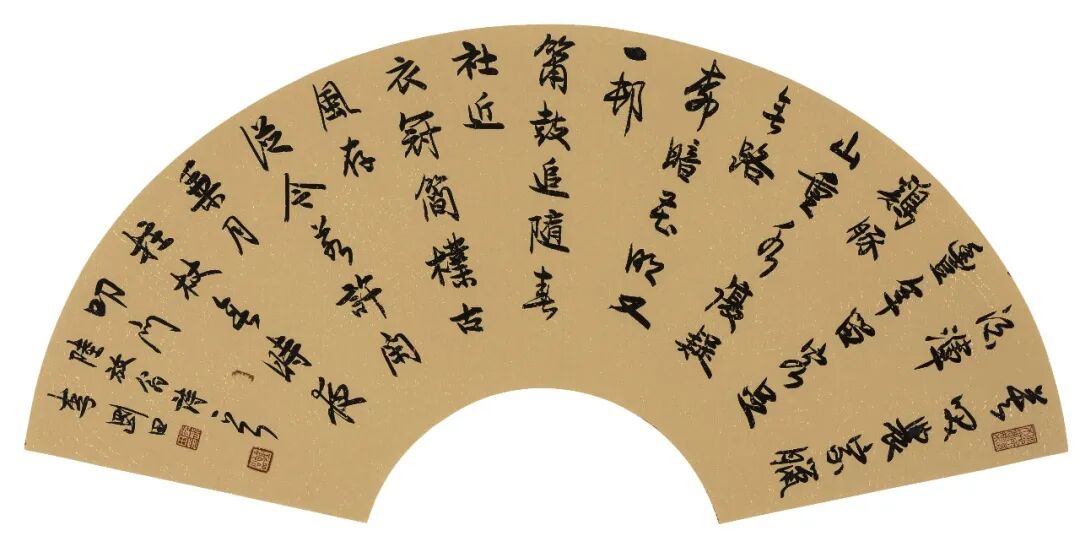 莫笑農家臘
酒渾
豐年留客足
鷄豚
山重水複疑
无路
柳暗花明又
一邨
簫鼓追隨春
社近
衣冠簡樸古
風存
從今若許閑
乘月
拄杖无時夜
叩門
陸放翁詩
李國田